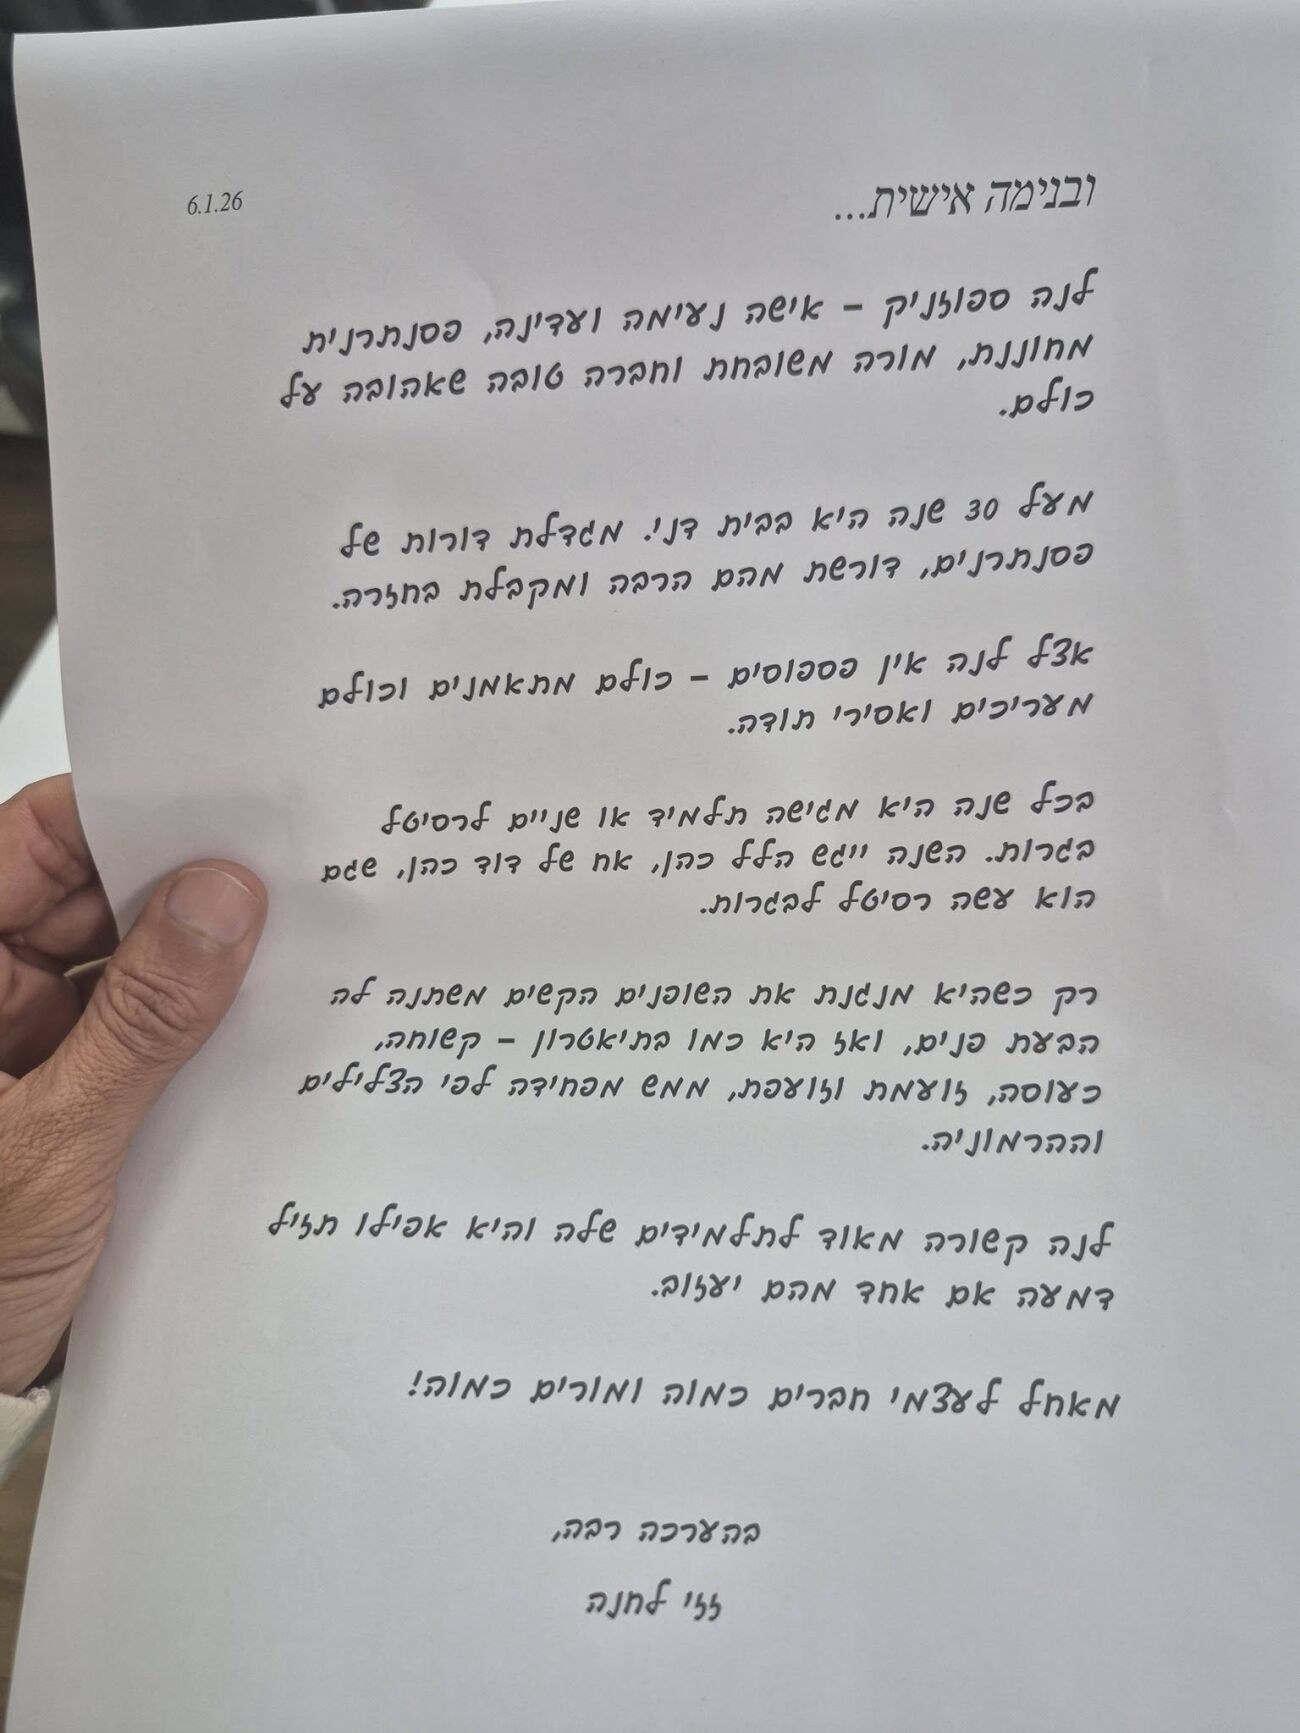 6.1.26
ובנימה אישית...
לנה ספוזניק – אישה נעימה ועדינה, פסנתרנית
מחוננת, מורה משובחת וחברה טובה שאהובה על
כולם.
מעל 30 שנה היא בבית דני. מגדלת דורות של
פסנתרנים, דורשת מהם הרבה ומקבלת בחזרה.
אצל לנה אין פספוסים – כולם מתאמנים וכולם
מעריכים ואסירי תודה.
בכל שנה היא מגישה תלמיד או שניים לרסיטל
בגרות. השנה ייגש הלל כהן, אח של דוד כהן, שגם
הוא עשה רסיטל לבגרות.
רק כשהיא מנגנת את השופנים הקשים משתנה לה
הבעת פנים, ואז היא כמו בתיאטרון – קשוחה,
כעוסה, זועמת וזועפת, ממש מפחידה לפי הצלילים
וההרמוניה.
לנה קשורה מאוד לתלמידים שלה והיא אפילו תזיל
דמעה אם אחד מהם יעזוב.
מאחל לעצמי חברים כמוה ומורים כמוה!
בהערכה רבה,
זזי לחנה